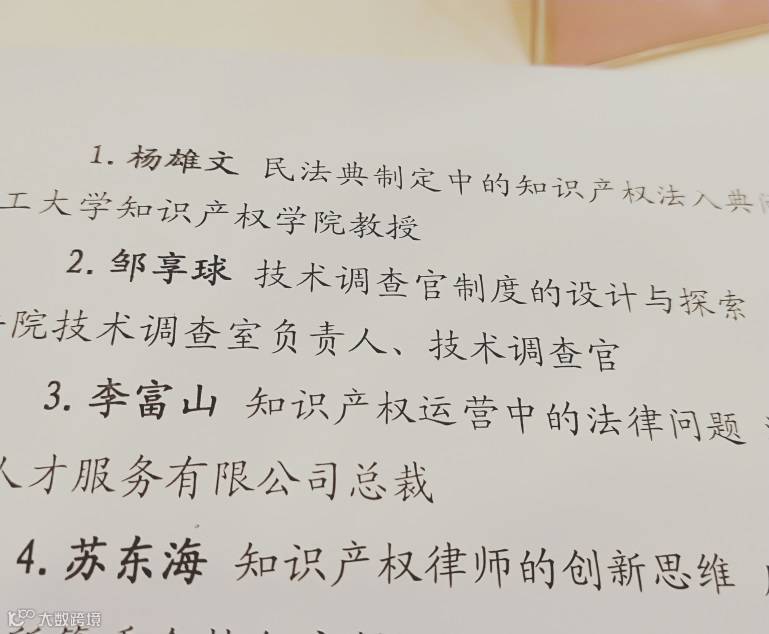 1. 杨雄文 民法典制定中的知识产权法入典
工大学知识产权学院教授
2. 邹享球 技术调查官制度的设计与探索
院技术调查室负责人、技术调查官
3. 李富山 知识产权运营中的法律问题
人才服务有限公司总裁
4. 苏东海 知识产权律师的创新思维
大数跨境